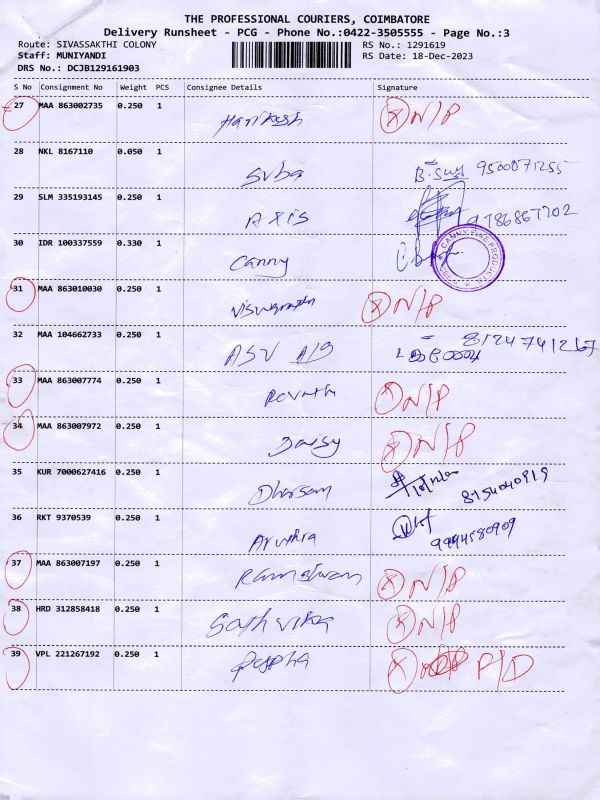 THE PROFESSIONAL COURIERS, COIMBATORE
Delivery Runsheet - PCG - Phone No.:0422-3505555 - Page No.:3
Route: SIVASSAKTHI COLONY RS No.: 1291619
Staff: MUNIYANDI RS Date: 18-Dec-2023
DRS No.: DCJB129161903
S No Consignment No Weight PCS Consignee Details Signature
27 MAA 863002735 0.250 1 Harikesh X N/P
28 NKL 8167110 0.050 1 Suba 9500871255
29 SLM 335193145 0.250 1 AXIS 9786867702
30 IDR 100337559 0.330 1 Canny
31 MAA 863010030 0.250 1 Viswanathan X N/P
32 MAA 104662733 0.250 1 ASV 8124741267
33 MAA 863007774 0.250 1 Revathi X N/P
34 MAA 863007972 0.250 1 Daisy X N/P
35 KUR 7000627416 0.250 1 8154040919
36 RKT 9370539 0.250 1 Aruthra 9994580909
37 MAA 863007197 0.250 1 X N/P
38 HRD 312858418 0.250 1 Sathvika X N/P
39 VPL 221267192 0.250 1 Puspha X P/D